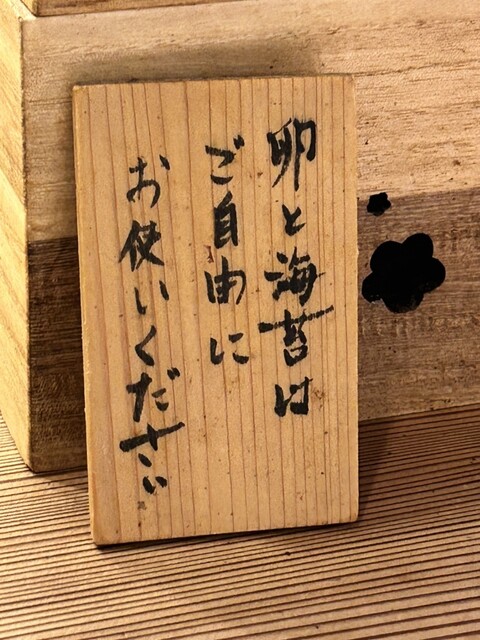 卵と海苔は
ご自由に
お使いください